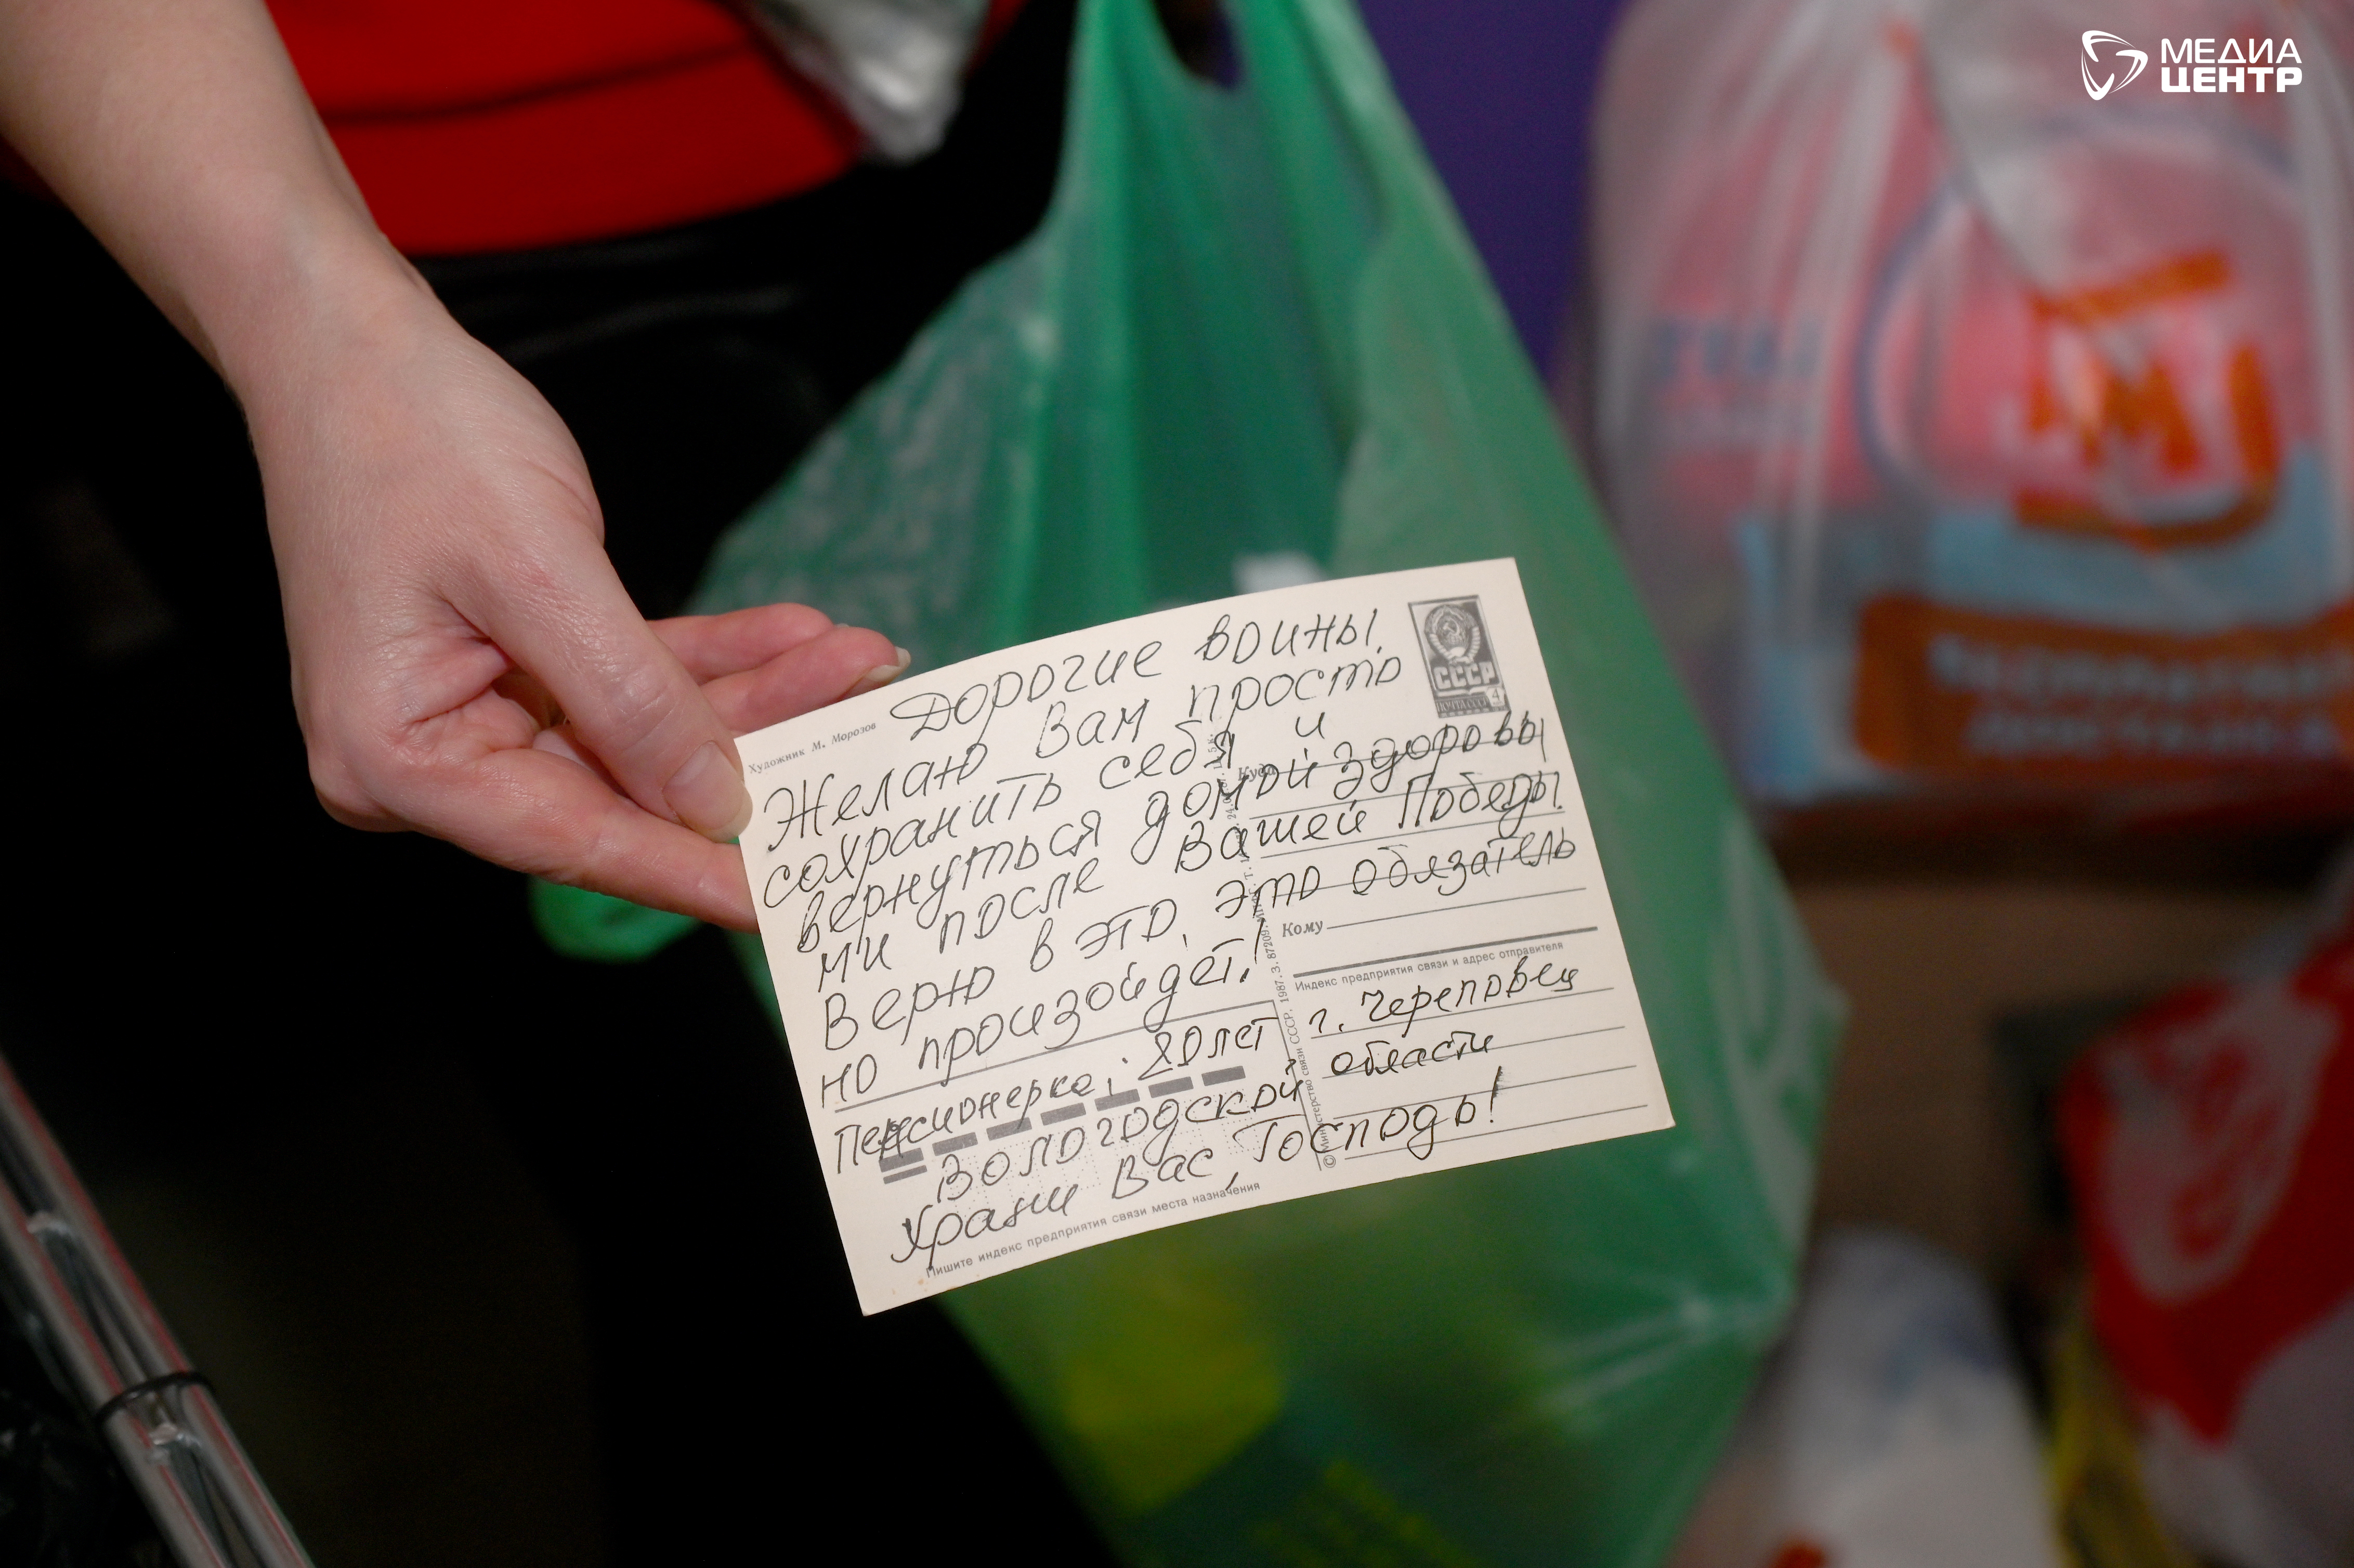 МЕДИА
ЦЕНТР
Художник М. Морозов
Дорогие воины
Желаю Вам просто
сохранить себя и
вернуться домой здоровы
ми после Вашей Победы.
Верю в это, это обязатель
но произойдет!
Пенсионерка, 80 лет
г. Череповец
Вологодской области
Храни Вас, Господь!
СССР
ПОЧТА СССР
4
Куда
Кому
Индекс предприятия связи и адрес отправителя
© Министерство связи СССР. 1987. З. 87209.
Пишите индекс предприятия связи места назначения
М